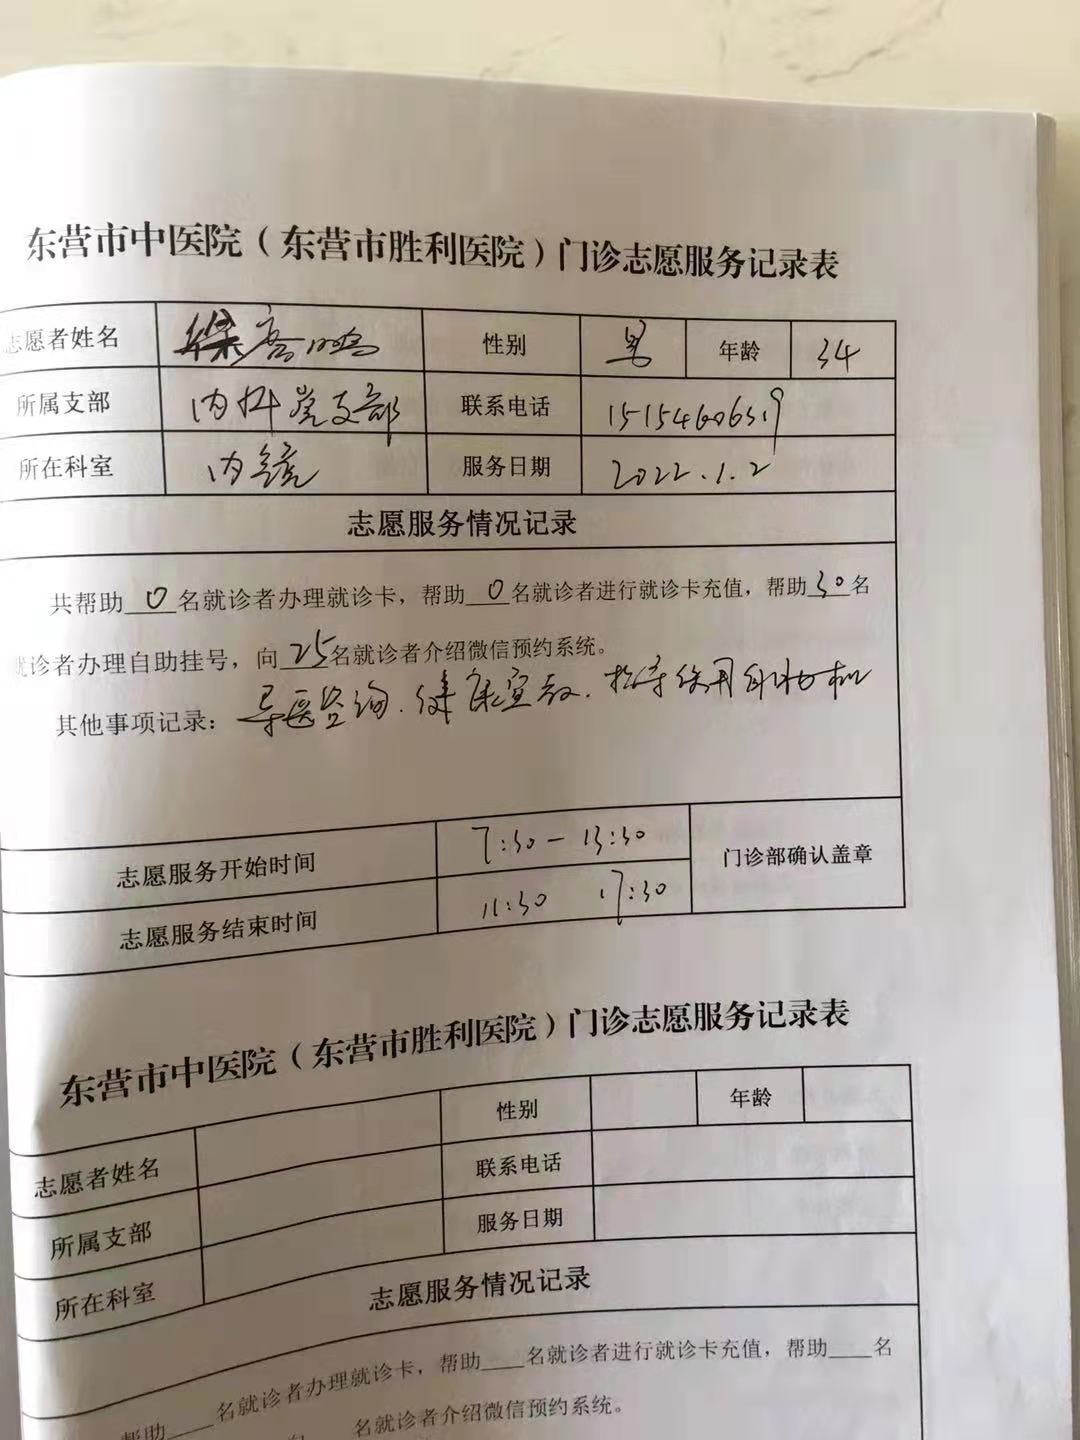 东营市中医院（东营市胜利医院）门诊志愿服务记录表
志愿者姓名 徐 鹏 性别 男 年龄 34
所属支部 内科党支部 联系电话
所在科室 内镜 服务日期 2022.1.2
志愿服务情况记录
共帮助 0 名就诊者办理就诊卡，帮助 0 名就诊者进行就诊卡充值，帮助 30 名
就诊者办理自助挂号，向 25 名就诊者介绍微信预约系统。
其他事项记录：导医咨询.健康宣教.指导使用自助机
志愿服务开始时间 7:30 — 13:30 门诊部确认盖章
志愿服务结束时间 11:30 17:30
东营市中医院（东营市胜利医院）门诊志愿服务记录表
志愿者姓名 性别 年龄
所属支部 联系电话
所在科室 服务日期
志愿服务情况记录
帮助___名就诊者办理就诊卡，帮助___名就诊者进行就诊卡充值，帮助___名
向___名就诊者介绍微信预约系统。